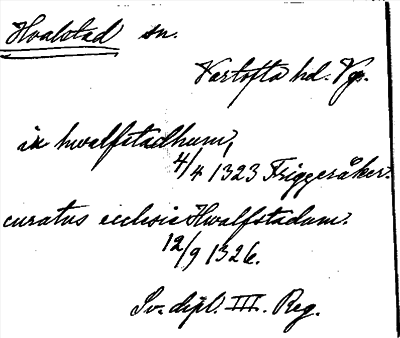 Hvalstad sn.
Vartofta hd. Vg.
in hwalfstadhum,
4/4 1323 Friggeråker.
curatus ecclesie Hwalfstadum.
12/9 1326.
Sv. dipl. III. Reg.